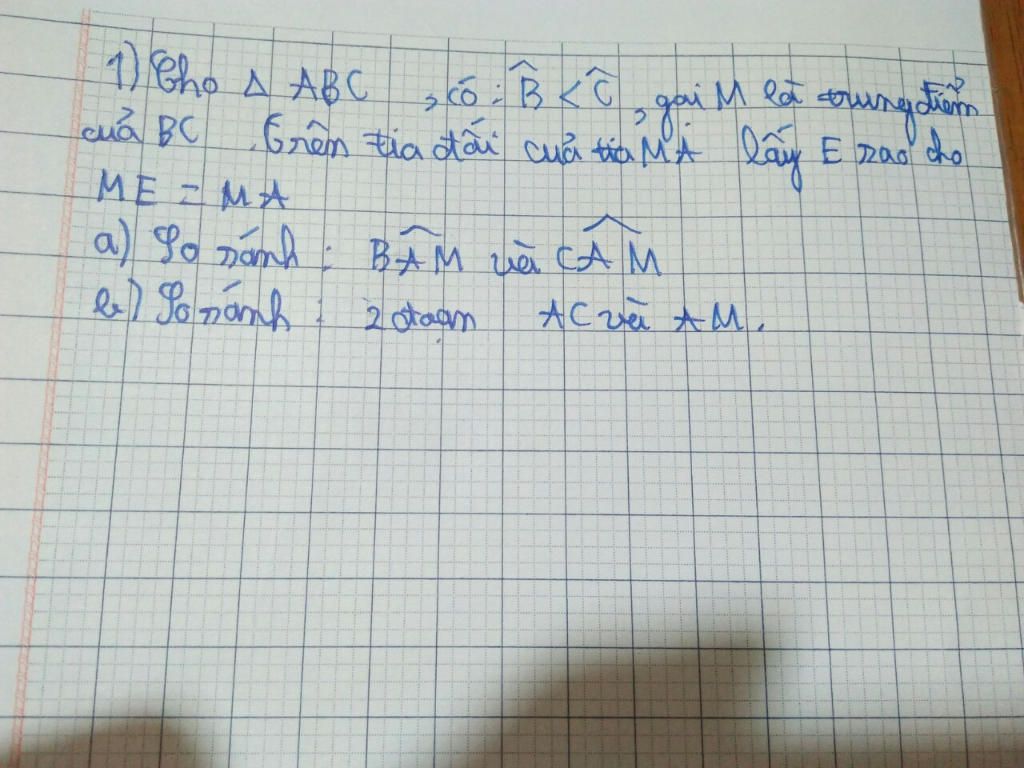 1) Cho Δ ABC , có : B̂ < Ĉ , gọi M là trung điểm
của BC . Trên tia đối của tia MA lấy E sao cho
ME = MA
a) So sánh : BÂM và CÂM
b) So sánh : 2 đoạn AC và AM .